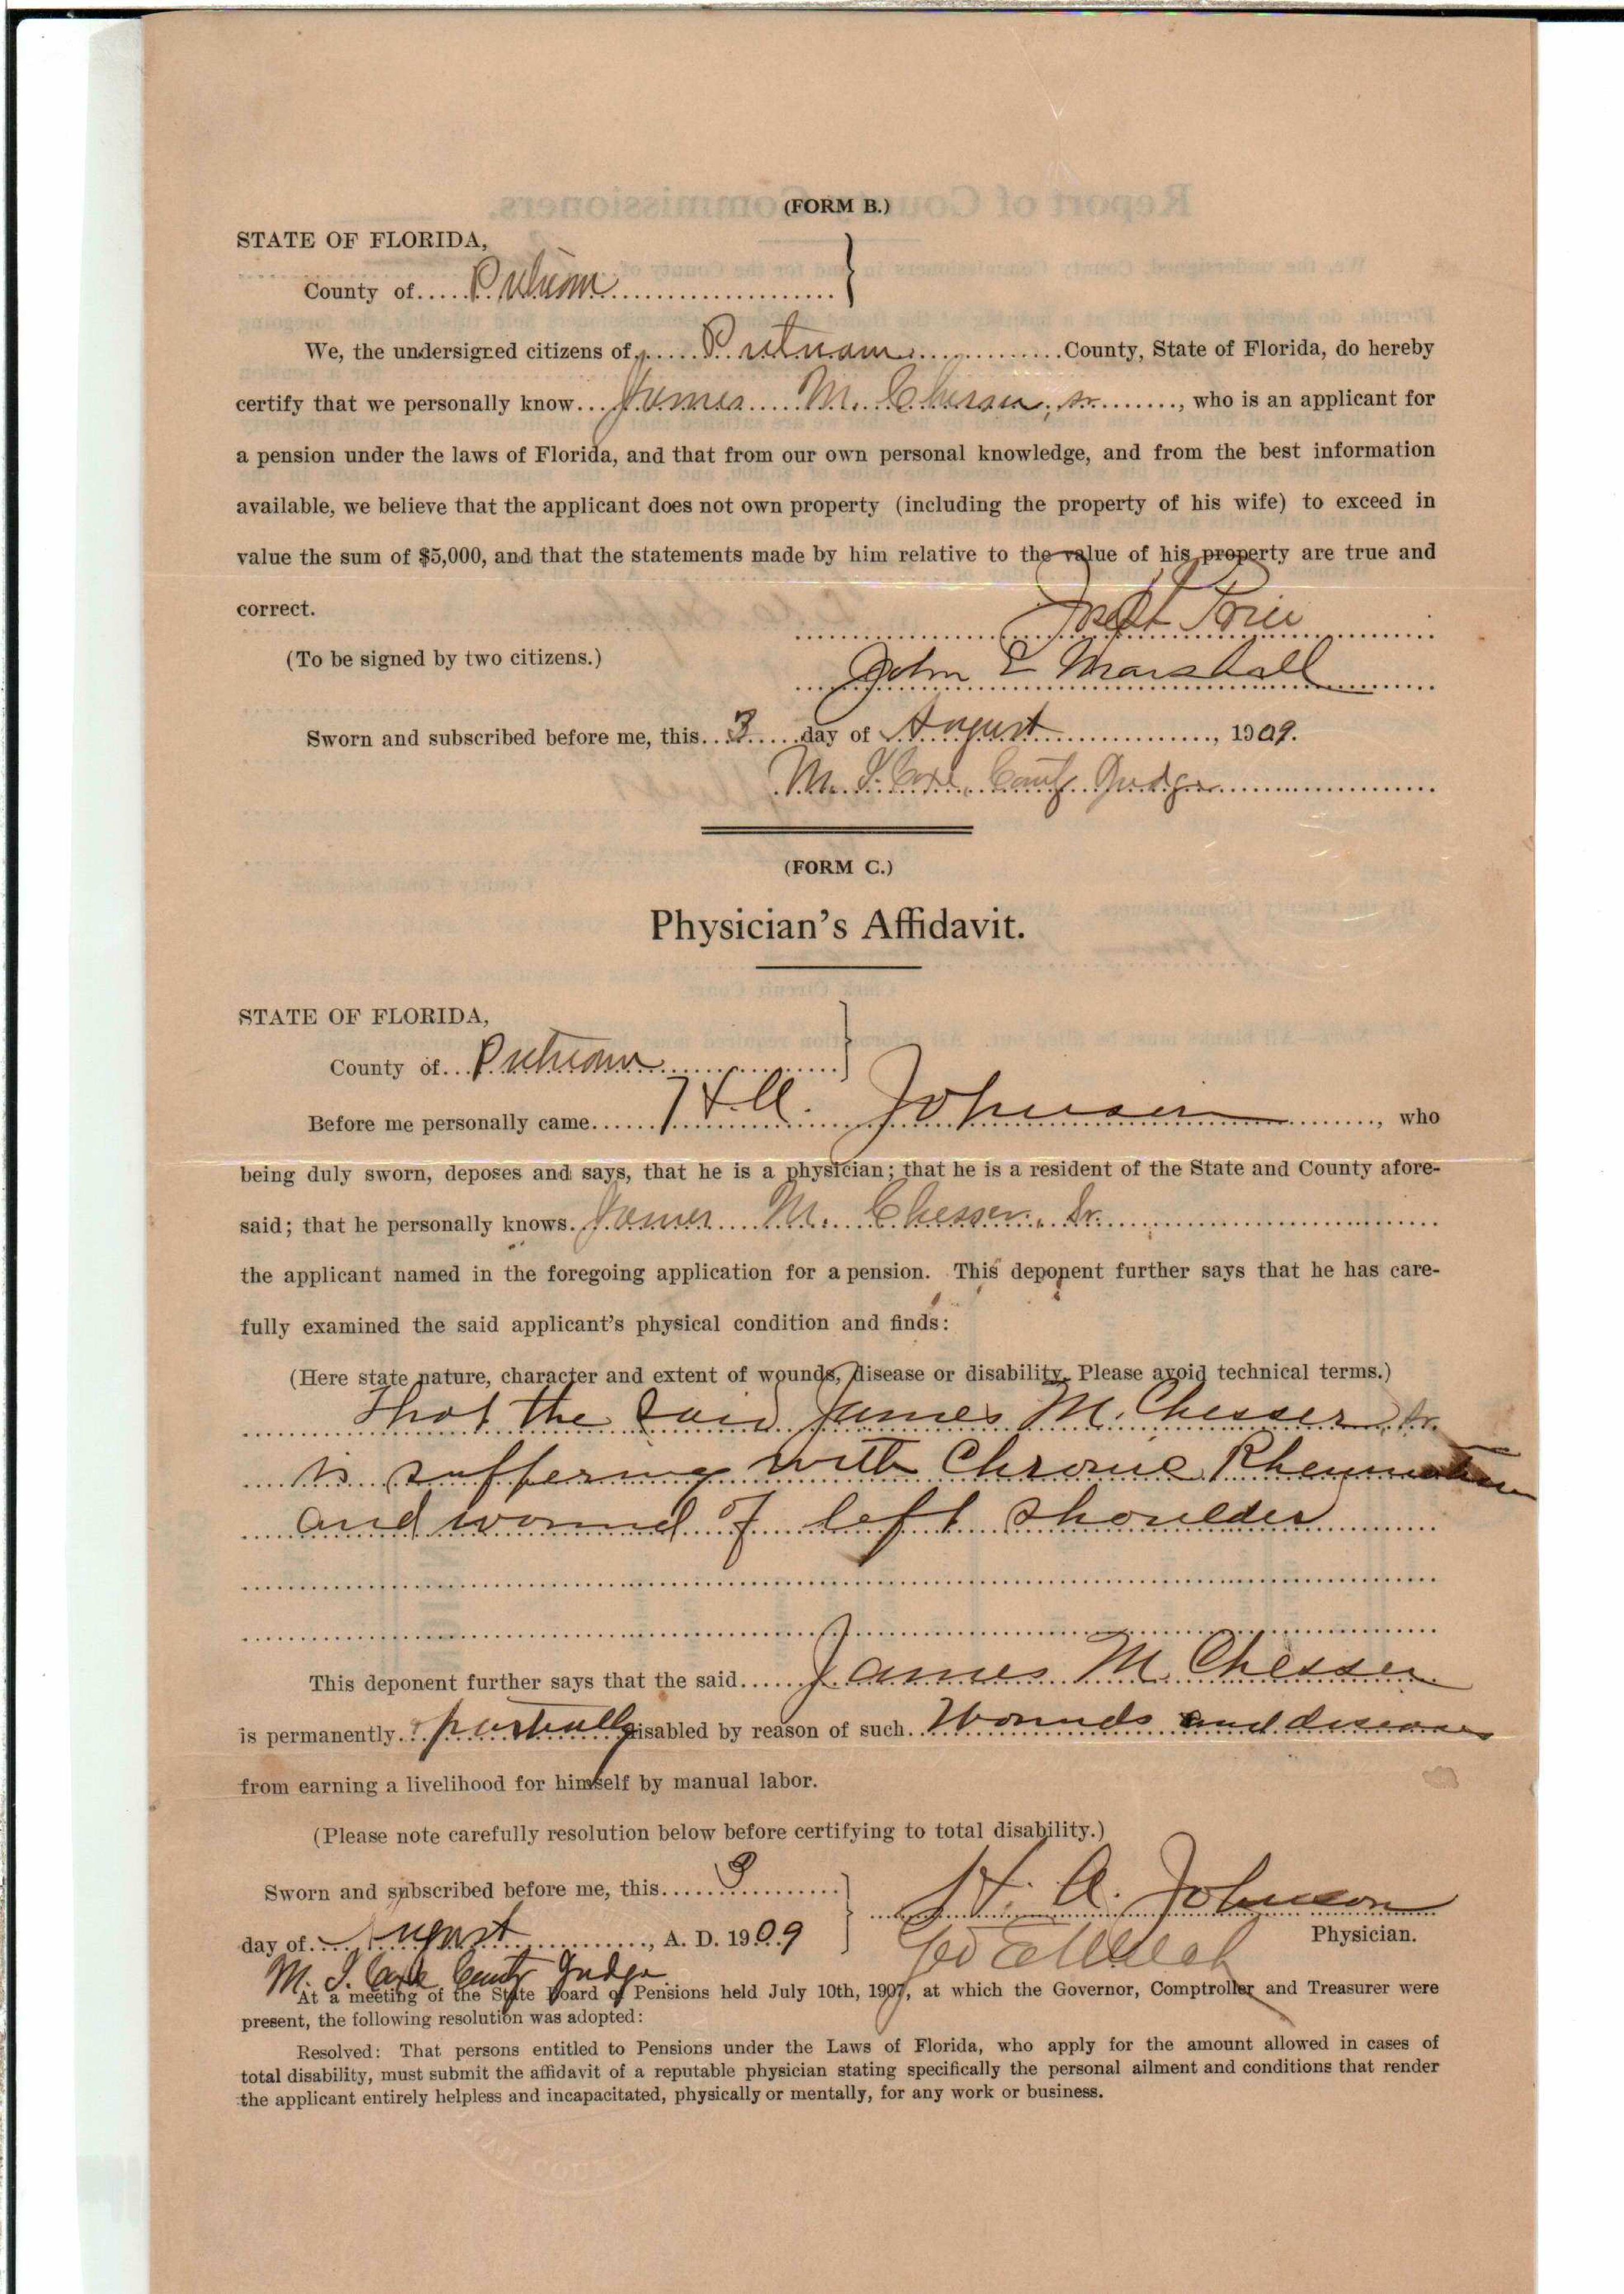 (FORM B.)
STATE OF FLORIDA,
County of Putnam
We, the undersigned citizens of Putnam County, State of Florida, do hereby
certify that we personally know James M. Chesser, Sr., who is an applicant for
a pension under the laws of Florida, and that from our own personal knowledge, and from the best information
available, we believe that the applicant does not own property (including the property of his wife) to exceed in
value the sum of $5,000, and that the statements made by him relative to the value of his property are true and
correct.
Price
(To be signed by two citizens.)
John E Marshall
Sworn and subscribed before me, this 3 day of August, 1909.
M. I. County Judge
(FORM C.)
Physician's Affidavit.
STATE OF FLORIDA,
County of Putnam
Before me personally came H.A. Johnson, who
being duly sworn, deposes and says, that he is a physician; that he is a resident of the State and County afore-
said; that he personally knows James M. Chesser, Sr.
the applicant named in the foregoing application for a pension. This deponent further says that he has care-
fully examined the said applicant's physical condition and finds:
(Here state nature, character and extent of wounds, disease or disability. Please avoid technical terms.)
That the said James M. Chesser Sr.
is suffering with Chronic Rheumatism
and wound of left shoulder
This deponent further says that the said James M. Chesser
is permanently partially disabled by reason of such Wounds and disease
from earning a livelihood for himself by manual labor.
(Please note carefully resolution below before certifying to total disability.)
Sworn and subscribed before me, this 3
H. A. Johnson
day of August, A. D. 1909
Physician.
Geo E Welch
M. I. County Judge
At a meeting of the State Board of Pensions held July 10th, 1907, at which the Governor, Comptroller and Treasurer were
present, the following resolution was adopted:
Resolved: That persons entitled to Pensions under the Laws of Florida, who apply for the amount allowed in cases of
total disability, must submit the affidavit of a reputable physician stating specifically the personal ailment and conditions that render
the applicant entirely helpless and incapacitated, physically or mentally, for any work or business.